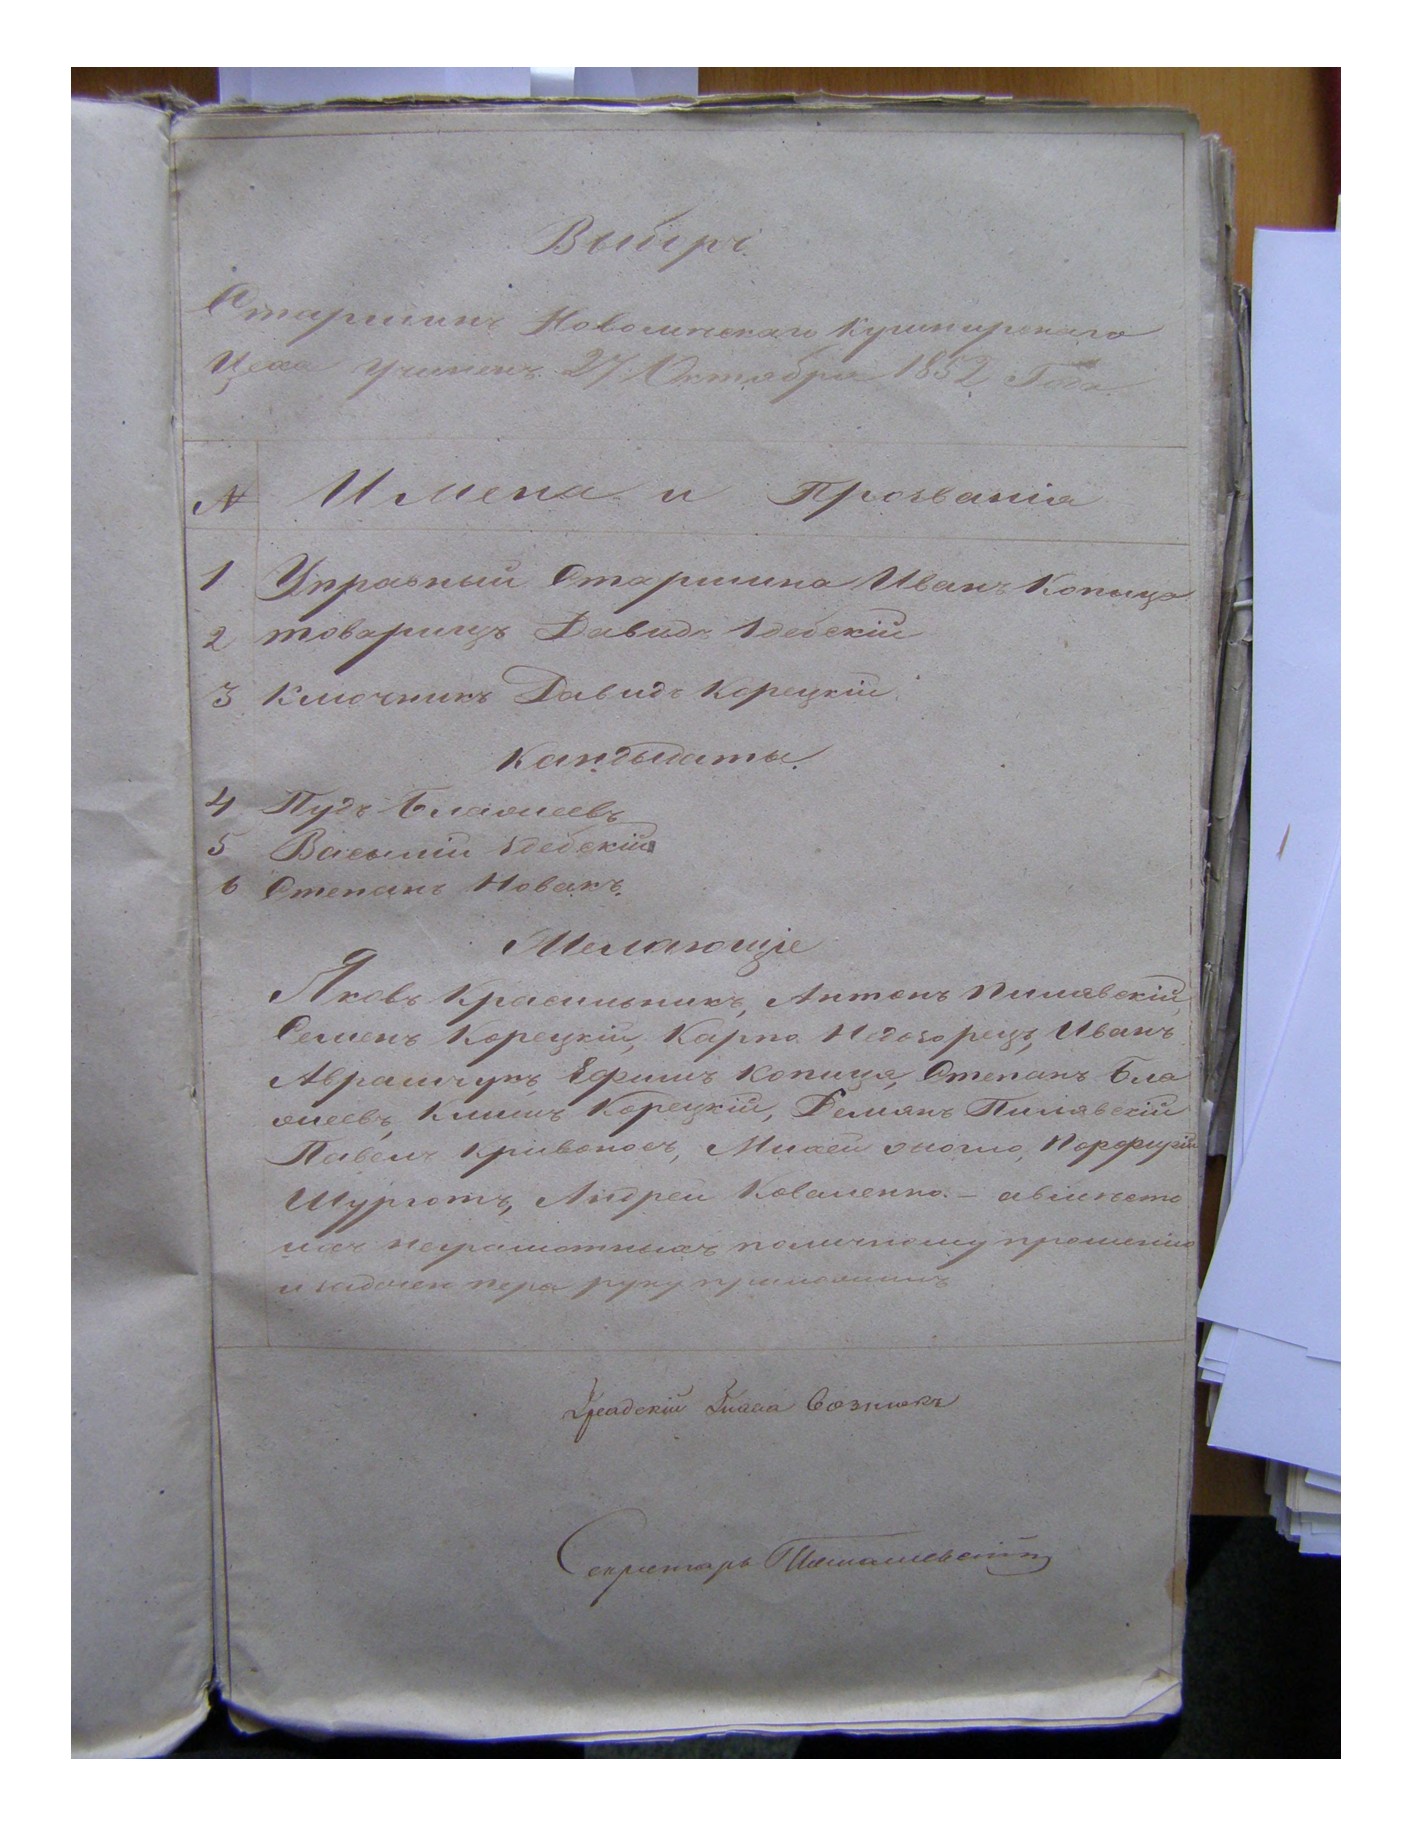 Выборъ
Старшинъ Новомѣскаго Кушнирскаго
Цеха учиненъ 27 Октября 1852 Года
№ Имена и Прозванія
1 Управный Старшина Иванъ Копыца
2 товарищъ Давидъ Здебскій
3 Ключникъ Давидъ Корецкій
Кандыдаты.
4 Пудъ Блажіевъ
5 Василій Здебскій
6 Степанъ Новакъ.
Желающіе
Яковъ Красильникъ, Антонъ Пилявскій,
Семенъ Корецкій, Карпо Недозорецъ, Иванъ
Аврамчукъ, Ефимъ Копица, Степанъ Бла
жіевъ, Климъ Корецкій, Демянъ Пилявскій
Павелъ Кривоносъ, Михей, Порфирій
Шурготъ, Андрей Коваленко. – авмѣсто
ихъ неграмотныхъ поличному прошенію
и задачею пера руку приложилъ
Градскій Глава Возникъ
Секретарь